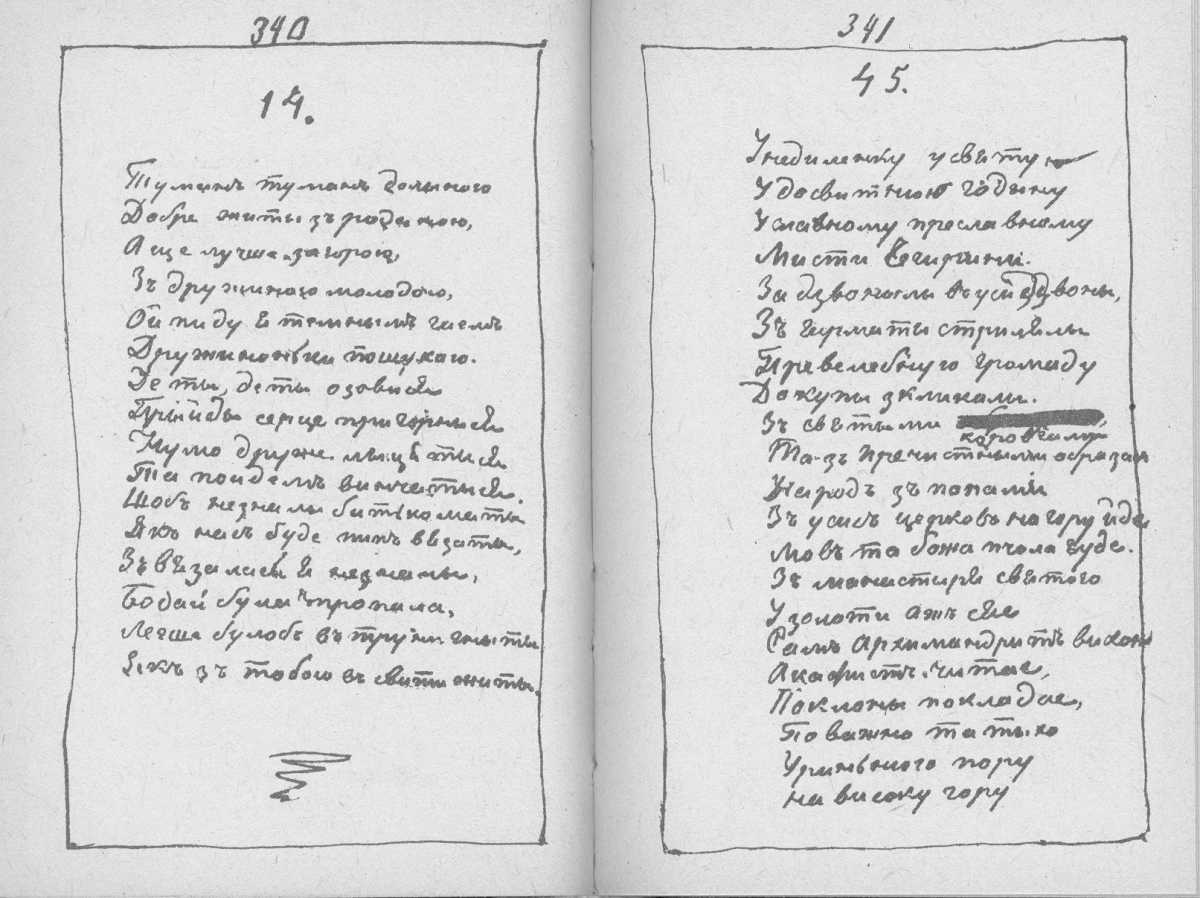 340
14.
Туманъ туманъ долыною
Добре жыты зъ родыною,
А ще лучше за горою,
Зъ дружиною молодою,
Ой пиду я темнымъ гаемъ
Дружиноньки пошукаю.
Де ты, де ты озовися
Прыйды серце пригорныся
Нумо друже лыцятися
Та пойдемъ винчатыся.
Щобъ незналы батько маты
Якъ насъ буде пипъ вязаты,
Звязалася я незналы,
Бодай була пропала,
Легше булобъ въ труни гныты
Якъ зъ тобою въ свити жыты.
341
45.
У недиленьку у святую
У досвитнюю годыну
У славному преславному
Мисти Чигирини.
Задзвонылы въ уси дзвоны,
Зъ гарматы стрилялы
Превелебную громаду
Докупы зкликалы.
Зъ святыми
коровгами
Та-зъ пречистыми образам
Народъ зъ попамы
Зъ усихъ церковъ на гору йде
Мовъ та божа пчола гуде.
Зъ манастиря святого
У золоти ажъ сяе
Самъ Архимандритъ виходе
Акафистъ читае,
Поклоны покладае,
Поважно та тыхо
У раннюю пору
На високу гору